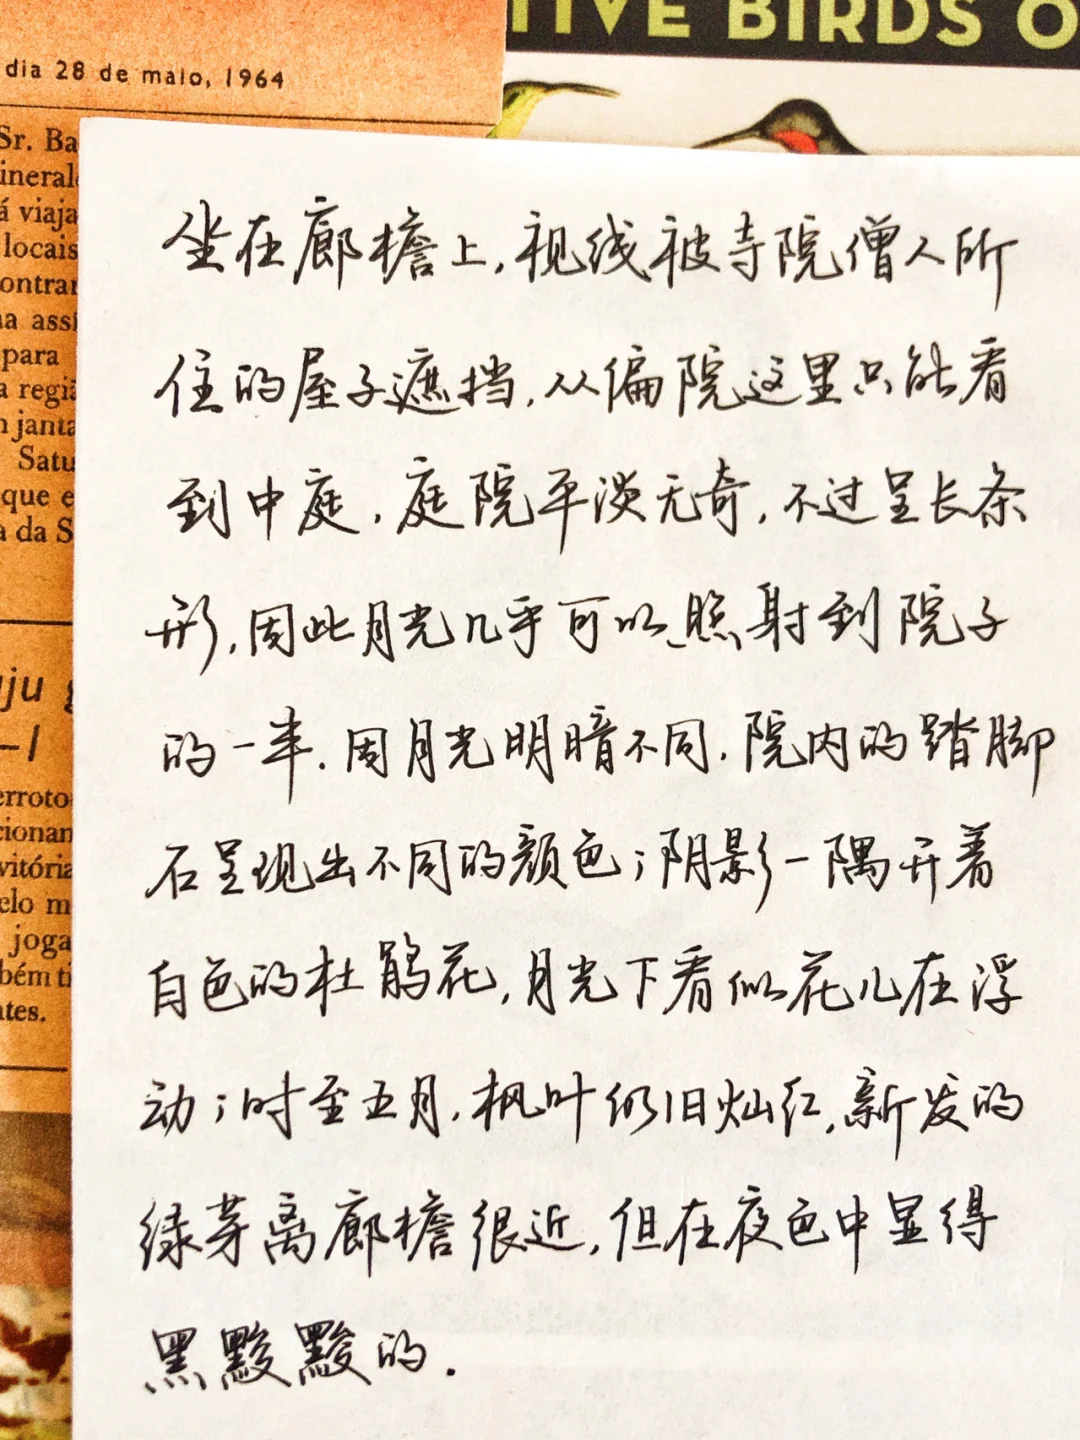 TIVE BIRDS O
dia 28 de maio, 1964
Sr. Ba
ineral
á viaja
locais
ontrar
na assi
para
a regiã
n janta
Satu
que e
a da S
uju g
-1
erroto
cionan
vitória
elo m
joga
bém ti
ntes.
坐在廊檐上,视线被寺院僧人所
住的屋子遮挡,从偏院这里只能看
到中庭,庭院平淡无奇,不过呈长条
形,因此月光几乎可以照射到院子
的一半.因月光明暗不同,院内的踏脚
石呈现出不同的颜色;阴影一隅开着
白色的杜鹃花,月光下看似花儿在浮
动;时至五月,枫叶仍旧灿红,新发的
绿芽离廊檐很近,但在夜色中显得
黑黢黢的.